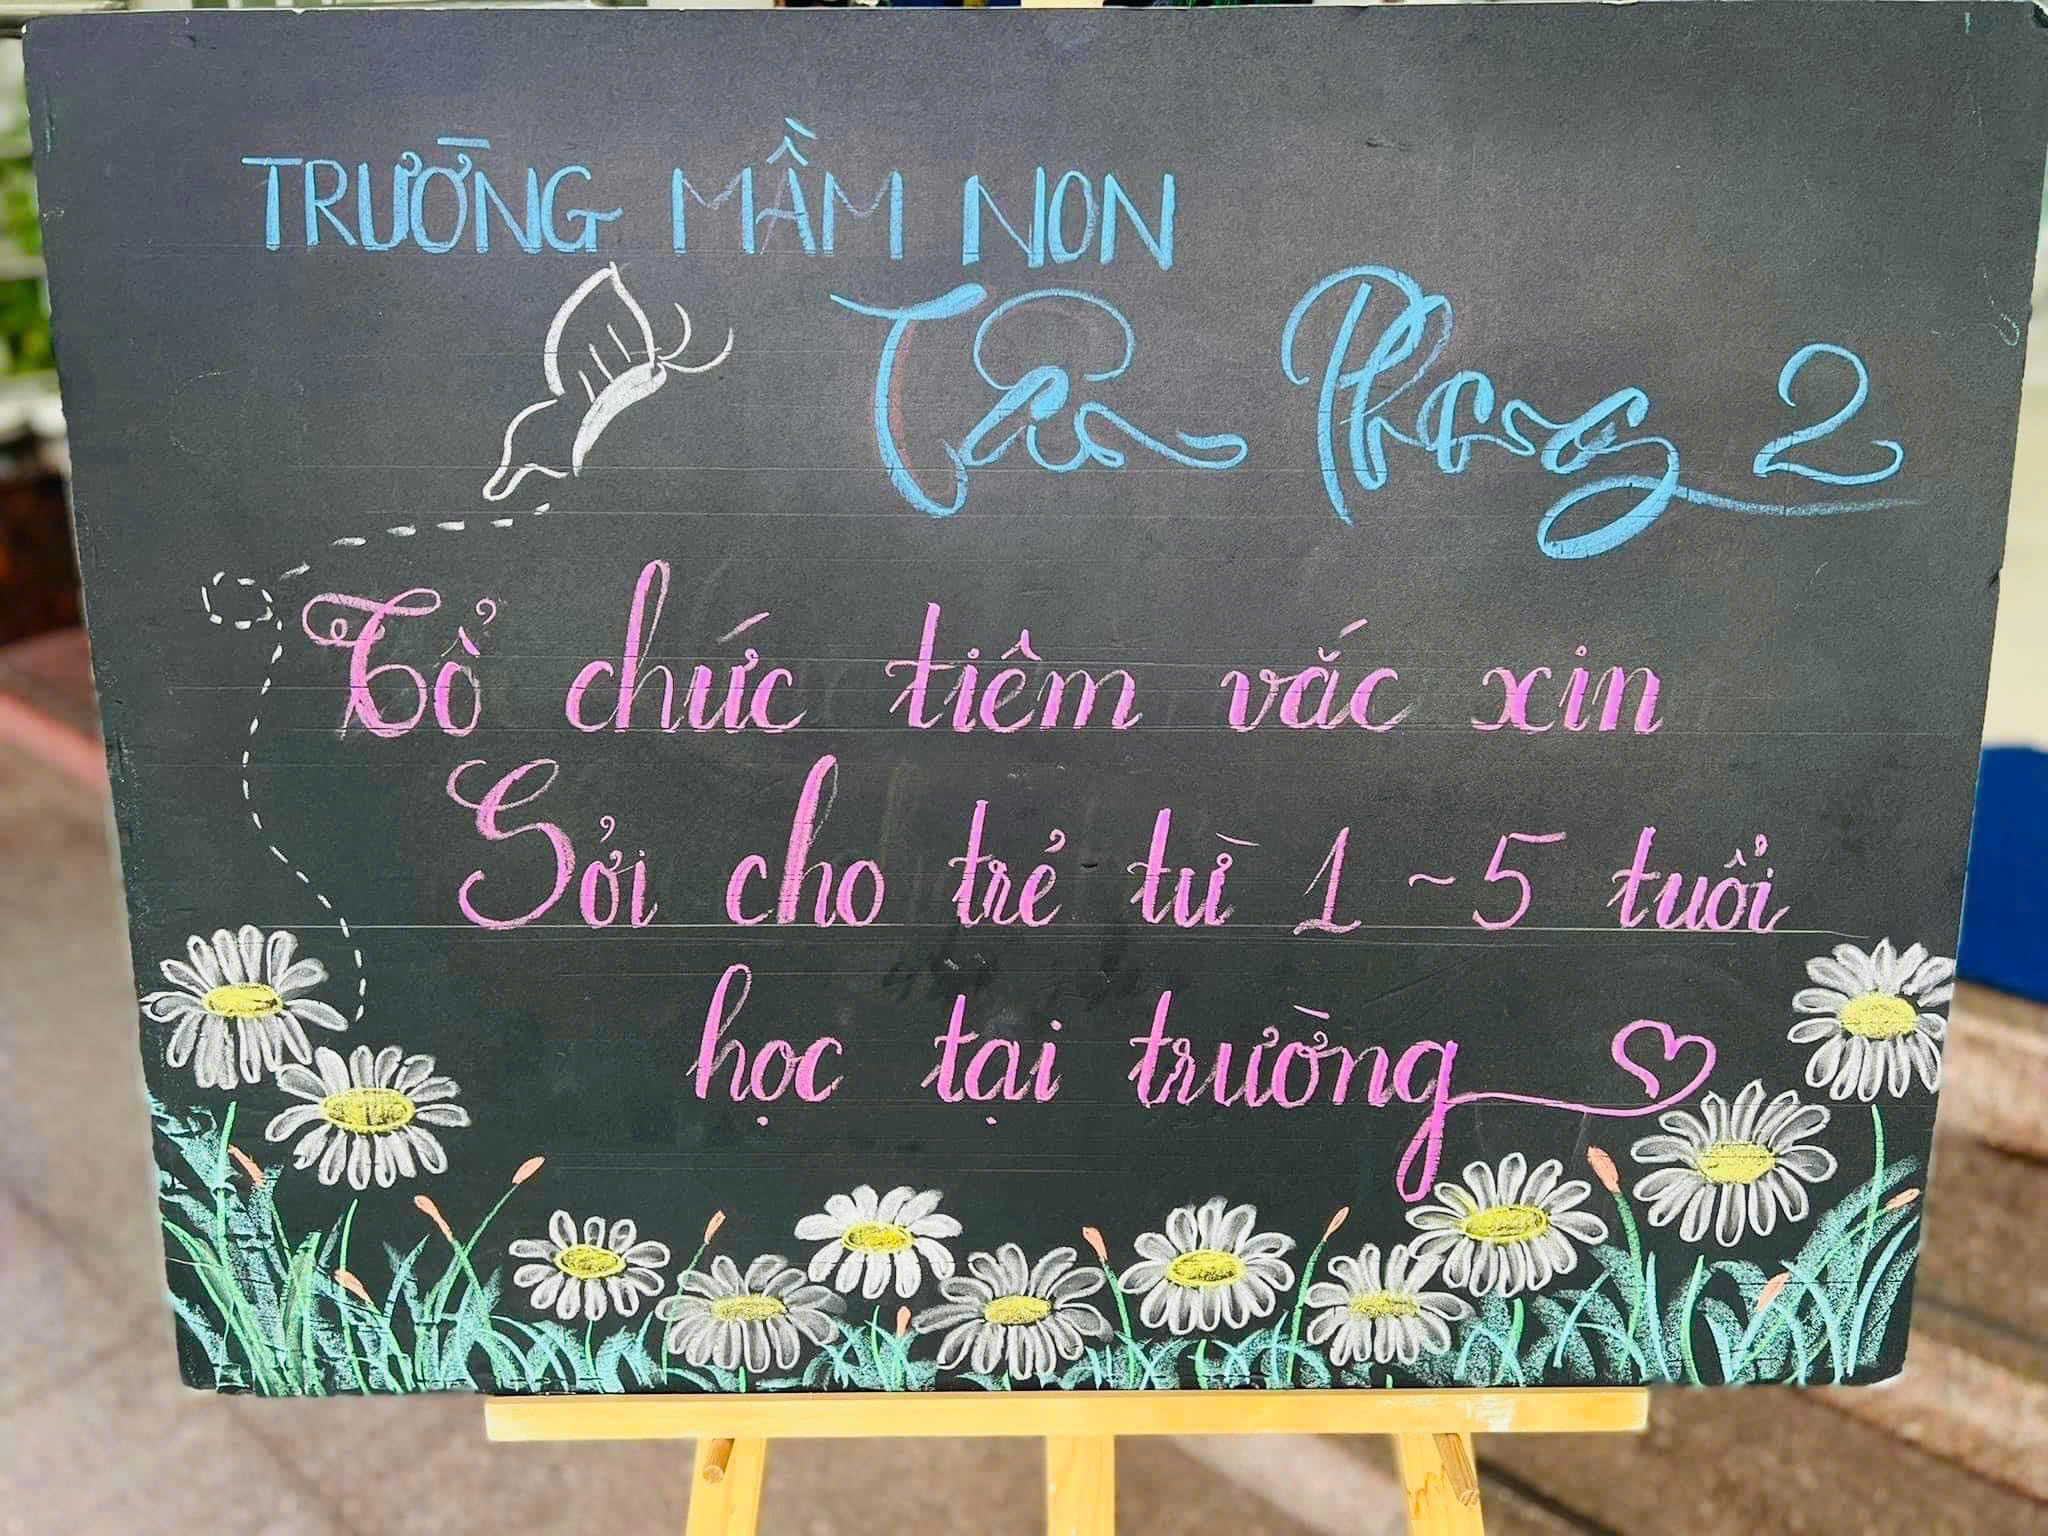 TRƯỜNG MẦM NON
Tân Phong 2
Tổ chức tiêm vắc xin
Sởi cho trẻ từ 1 - 5 tuổi
học tại trường